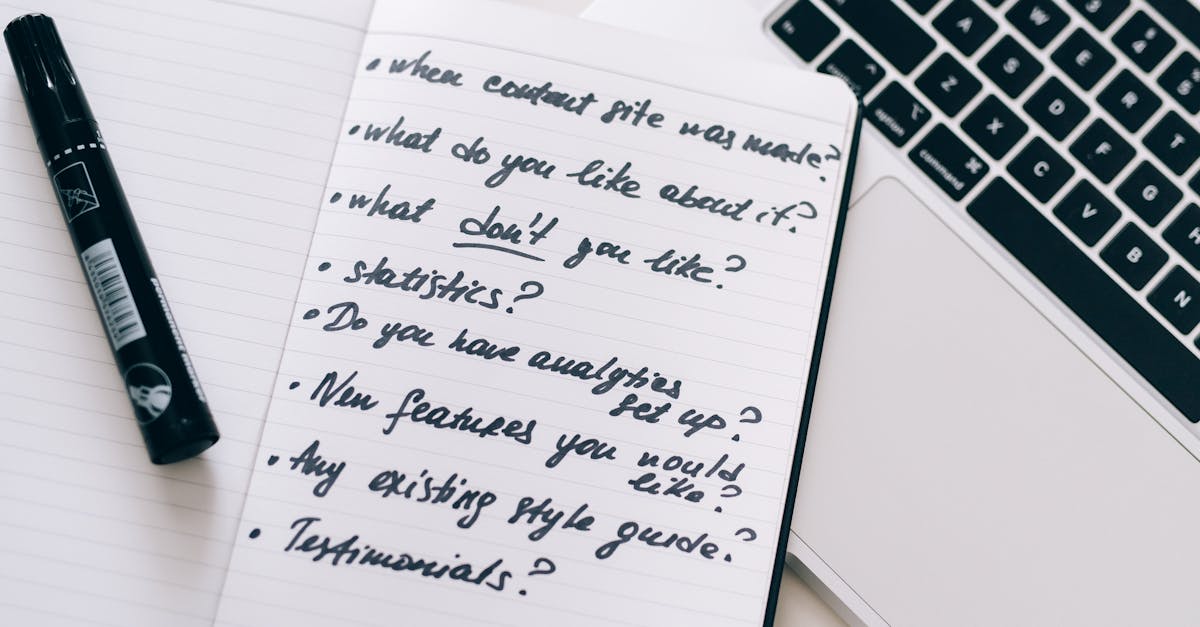 • when content site was made?
• what do you like about it?
• what don't you like?
• statistics?
• Do you have analytics
set up?
• New features you would
like?
• Any existing style guide?
• Testimonials?
3 4 5
W E R T
A S D F G H
Z X C V B N
fn option command